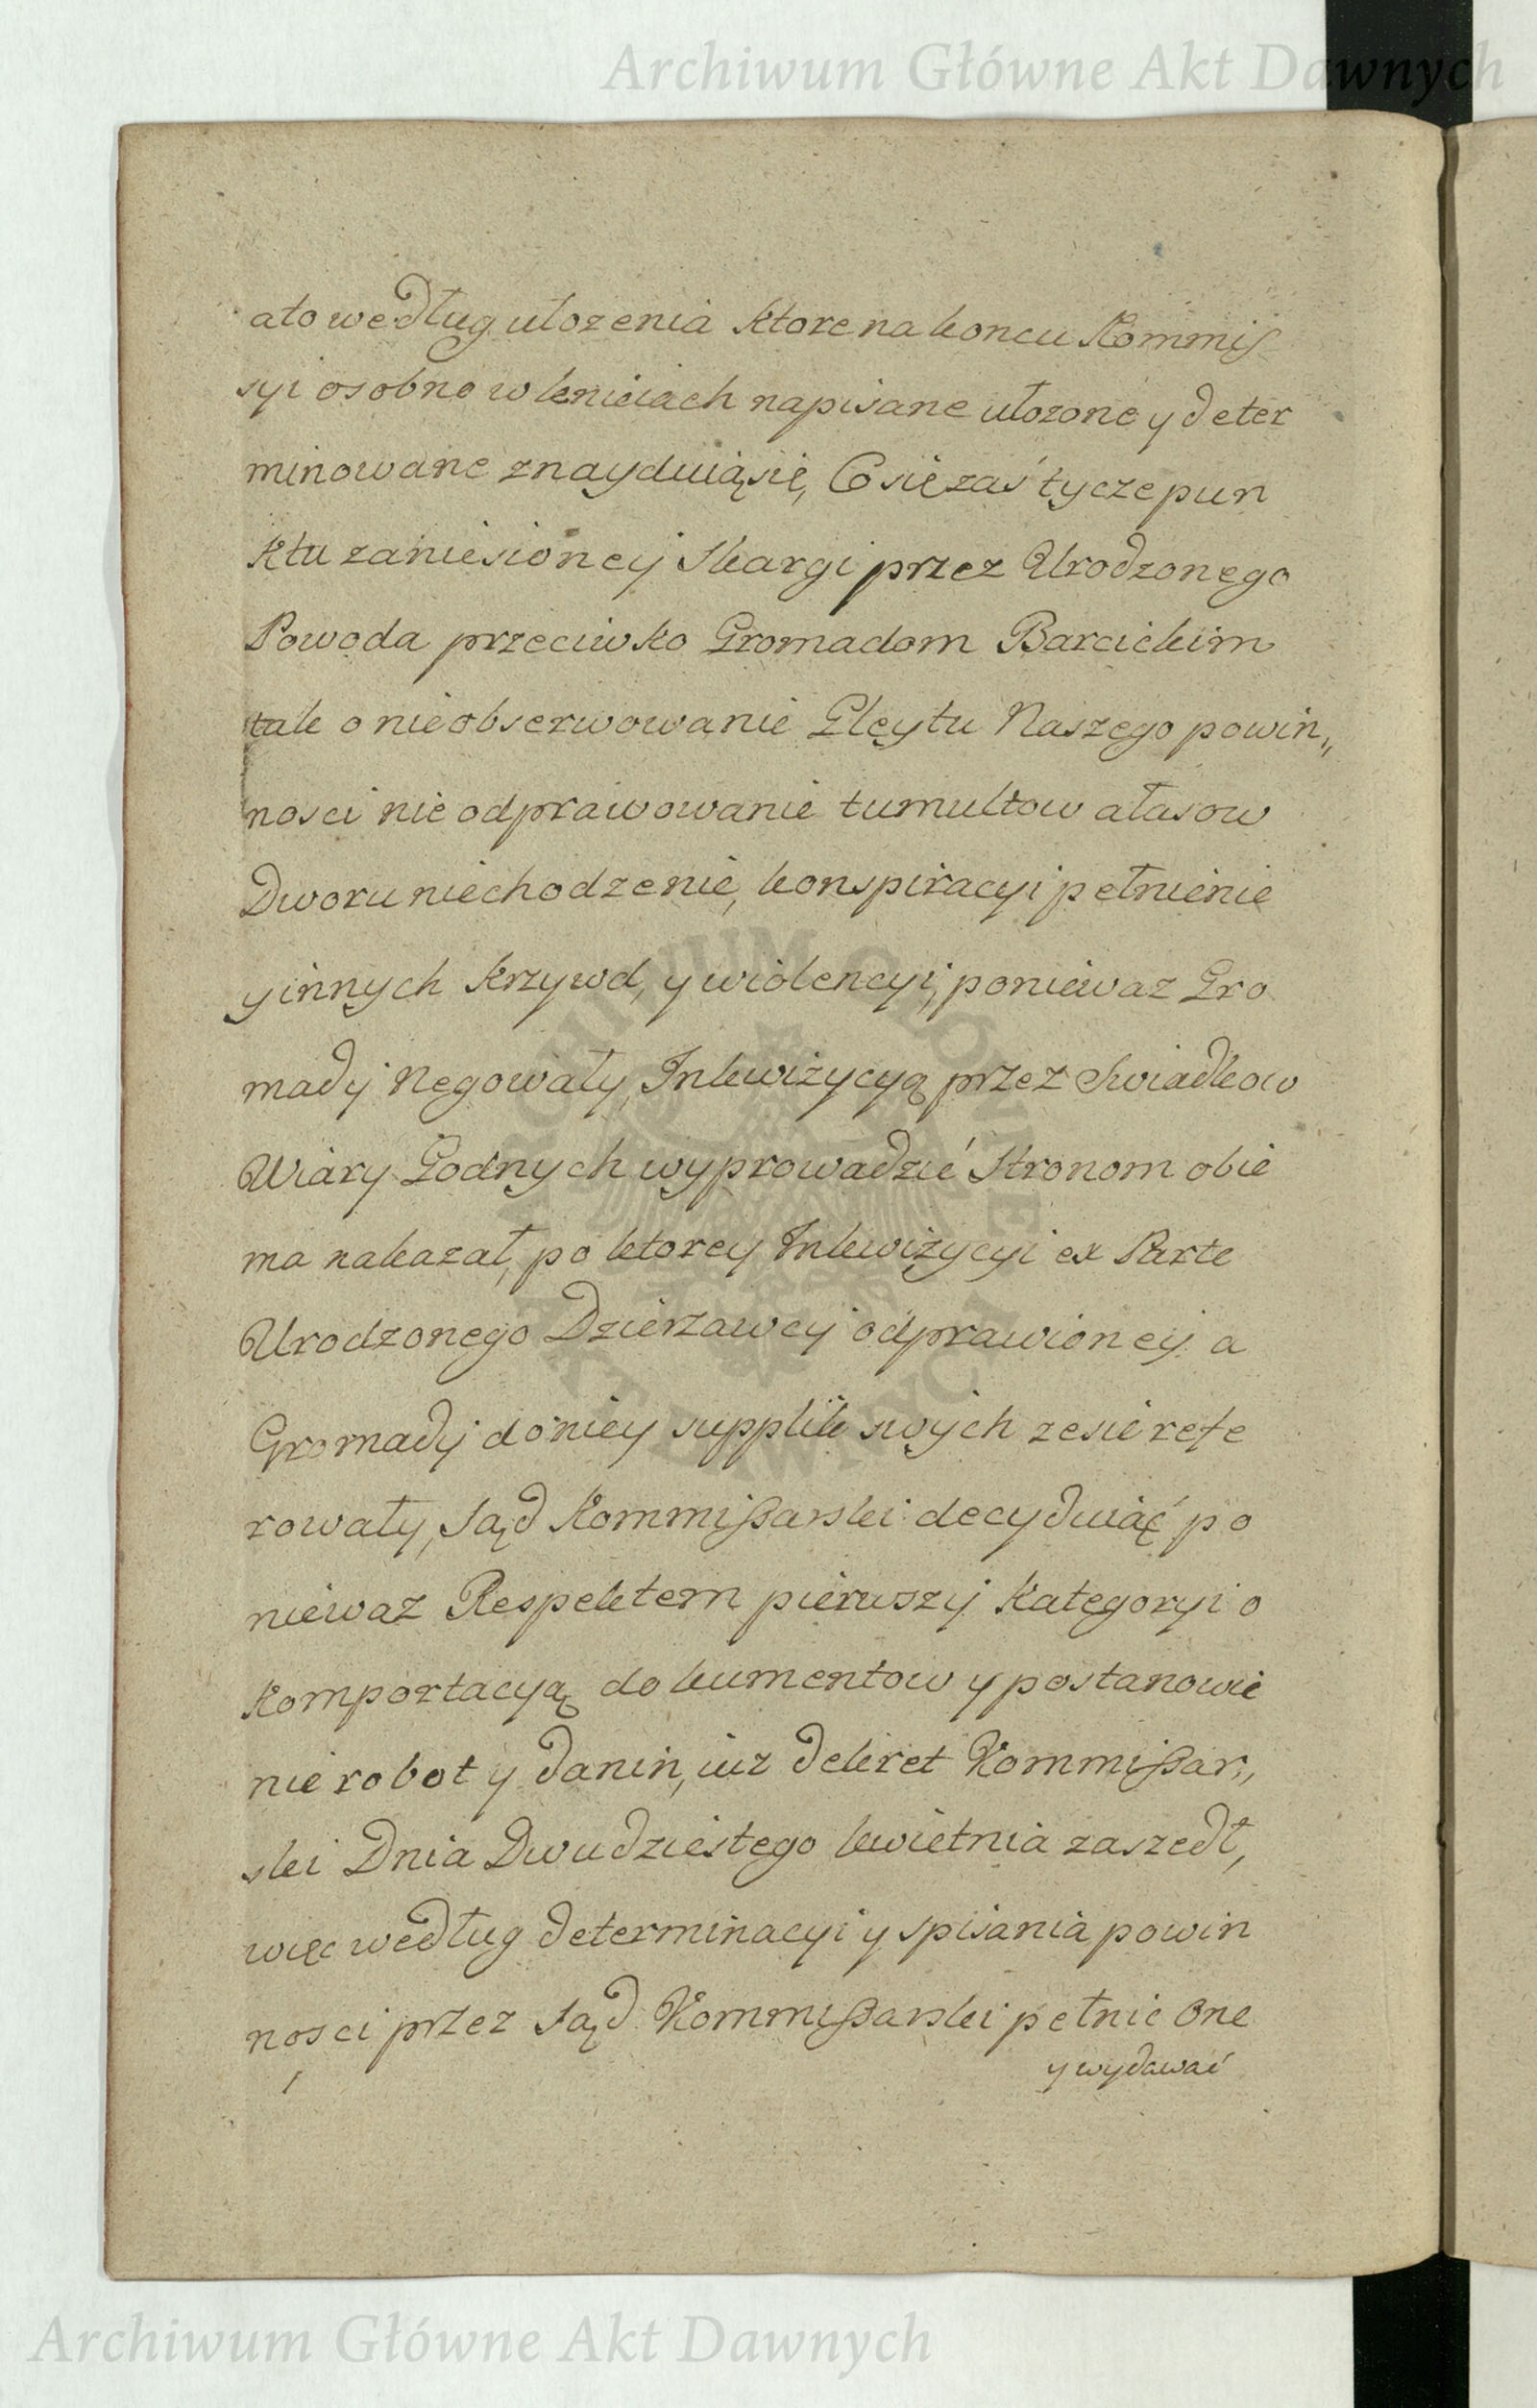 Archiwum Główne Akt Dawnych
ato według ułozenia ktore na koncu Kommis
syi osobno w kniciach napisane ułozone y deter
minowane znayduią się, Co się zaś tycze pun
ktu zaniesioney Skargi przez Urodzonego
Powoda przeciwko Gromadom Barcickim
tak o nieobserwowanie Gleytu Naszego powin„
nosci nie odprawowanie tumultow ałasow
Dworu niechodzenie, konspiracyi pełnienie
y innych krzywd, y wiolencyi, poniewaz Gro
mady Negowały, Inkwizycyą przez Swiadkow
Wiary Godnych wyprowadzić Stronom obie
ma nakazał, po ktorey Inkwizycyi ex Parte
Urodzonego Dzierzawcy odprawioney a
Gromady do niey supplik swych ze sie refe
rowały, Sąd Kommißarski decyduiąć po
niewaz Respektem pierwszy Kategoryi o
Komportacyą dokumentow y postanowie
nie robot y danin, iuz dekret Kommißar„
ski Dnia Dwudziestego kwietnia zaszedł,
więc według determinacyi y spisania powin
nosci przez Sąd Kommißarski pełnic One
y wydawać
Archiwum Główne Akt Dawnych